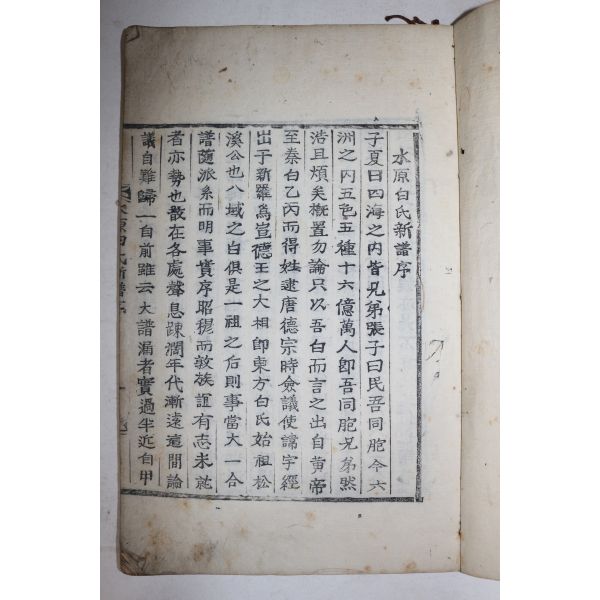 水原白氏新譜序
子夏曰四海之內皆兄弟張子曰民吾同胞今六
洲之內五色五種十六億萬人卽吾同胞兄弟然
浩且煩矣槪置勿論只以吾白而言之出自黃帝
至秦白乙丙而得姓逮唐德宗時僉議使諱宇經
出于新羅爲宣德王之大相卽東方白氏始祖松
溪公也八域之白俱是一祖之后則事當大一合
譜隨派系而明事實序昭穆而敦族誼有志未就
者亦勢也散在各處聲息踈濶年代漸遠遠間論
議自難歸一自前雖云大譜漏者實過半近自甲
水原白氏新譜序